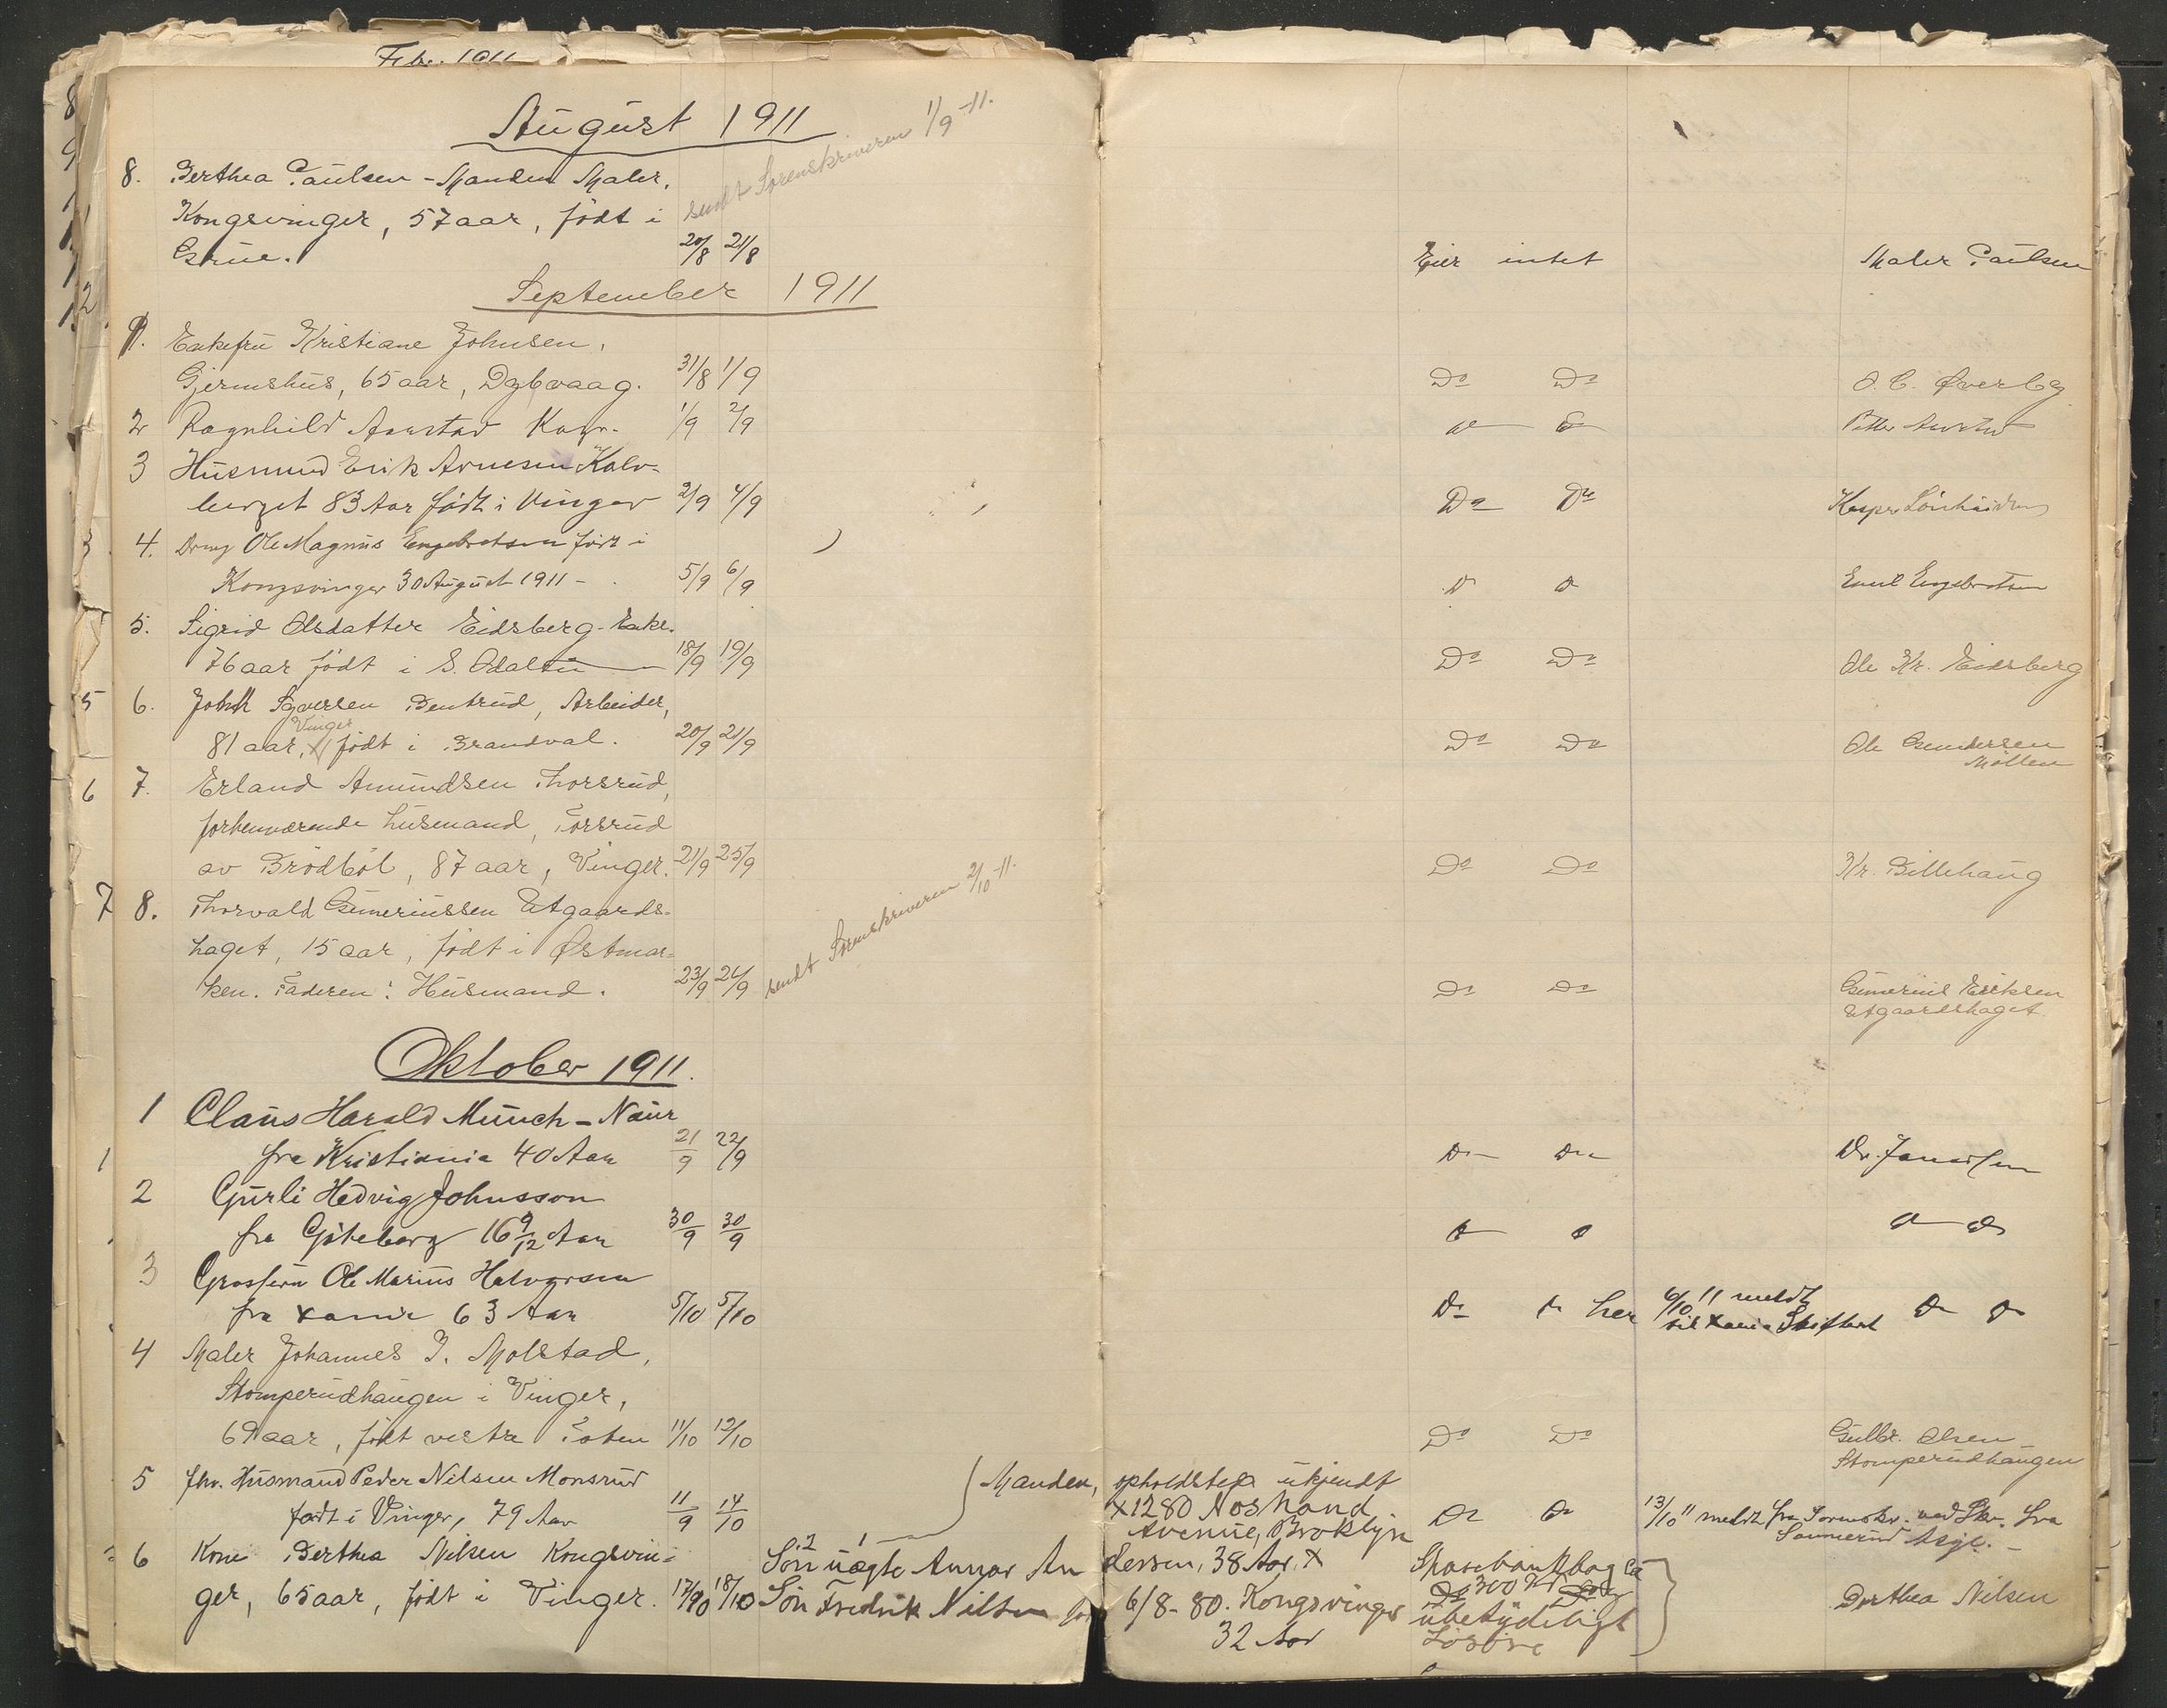 Feb. 1911
August 1911
sendt Sorenskriveren 1/9 -11.
8. Berthea Paulsen - Manden Maler,
Kongsvinger, 57 aar, født i
Grue. 20/8 21/8 Eier intet Maler Paulsen
September 1911
1. Enkefru Kristiane Johnsen,
Gjermshus, 65 aar, Dybvaag. 31/8 1/9 Do Do O. C. Øverby
2 Ragnhild Aamstad Kong. 1/9 2/9 Do Do Petter
3 Husmand Erik Arnesen Kalv-
berget 83 Aar født i Vinger 2/9 4/9 Do Do Kasper
4. Dreng Ole Magnus Engebretsen født i
Kongsvinger 30 August 1911 - 5/9 6/9 Do Do Emil Engebretsen
5. Sigrid Olsdatter Eidsberg - Enke.
76 aar født i S. Odalen 18/9 19/9 Do Do Ole Kr. Eidsberg
5 6. John Syversen Bentrud, Arbeider,
Vinger
81 aar, x født i Brandval. 20/9 21/9 Do Do Ole Gundersen
Möllen
6 7. Erland Amundsen Thorsrud,
forhenværende husmand, Torsrud
av Brödböl, 87 aar, Vinger. 21/9 25/9 Do Do Kr. Billehaug
7 8. Thorvald Gunneriussen Utgaards-
haget, 15 aar, født i Østmar-
ken. Faderen: Husmand. 23/9 24/9 sendt Sorenskriveren 2/10 -11. Do Do Gunerius Eriksen
Utgaardshaget
Oktober 1911.
1 Claus Harald Munch - Naur
1 fra Kristiania 40 Aar 21/9 22/9 Do Do Dr. Janssen
2 Gurli Hedvig Johnsson
fra Göteborg 16 9/12 Aar 30/9 30/9 Do Do Do Do
3 Grosserer Ole Marius Halvorsen
fra Xania 63 Aar 5/10 5/10 Do Do her 6/10 11 meldt
til Xania Skifteret Do Do
4 Maler Johannes J. Molstad,
Stomperudhaugen i Vinger,
69 aar, født vestre Toten 11/10 12/10 Do Do Gulbr. Olsen
Stomperudhaugen
5 fhv. Husmand Peder Nilsen Monsrud
født i Vinger, 79 Aar 11/9 14/10 Do Do 13/10 11 meldt fra Sorenskr. ved Skr. fra
Sannerud Asyl. -
6 Kone Berthea Nilsen Kongsvin-
ger, 65 aar, født i Vinger. 17/10 18/10
Manden, opholdsted ukjendt
x 1280 Nostrand
Avenue, Broklyn
Sön uægte Annar Andersen, 38 Aar. x
Sön Fredrik Nilsen født 6/8-80. Kongsvinger
32 Aar
Sparebankbog ca
300 Kr
ubetydeligt
Lösöre
Dorthea Nilsen